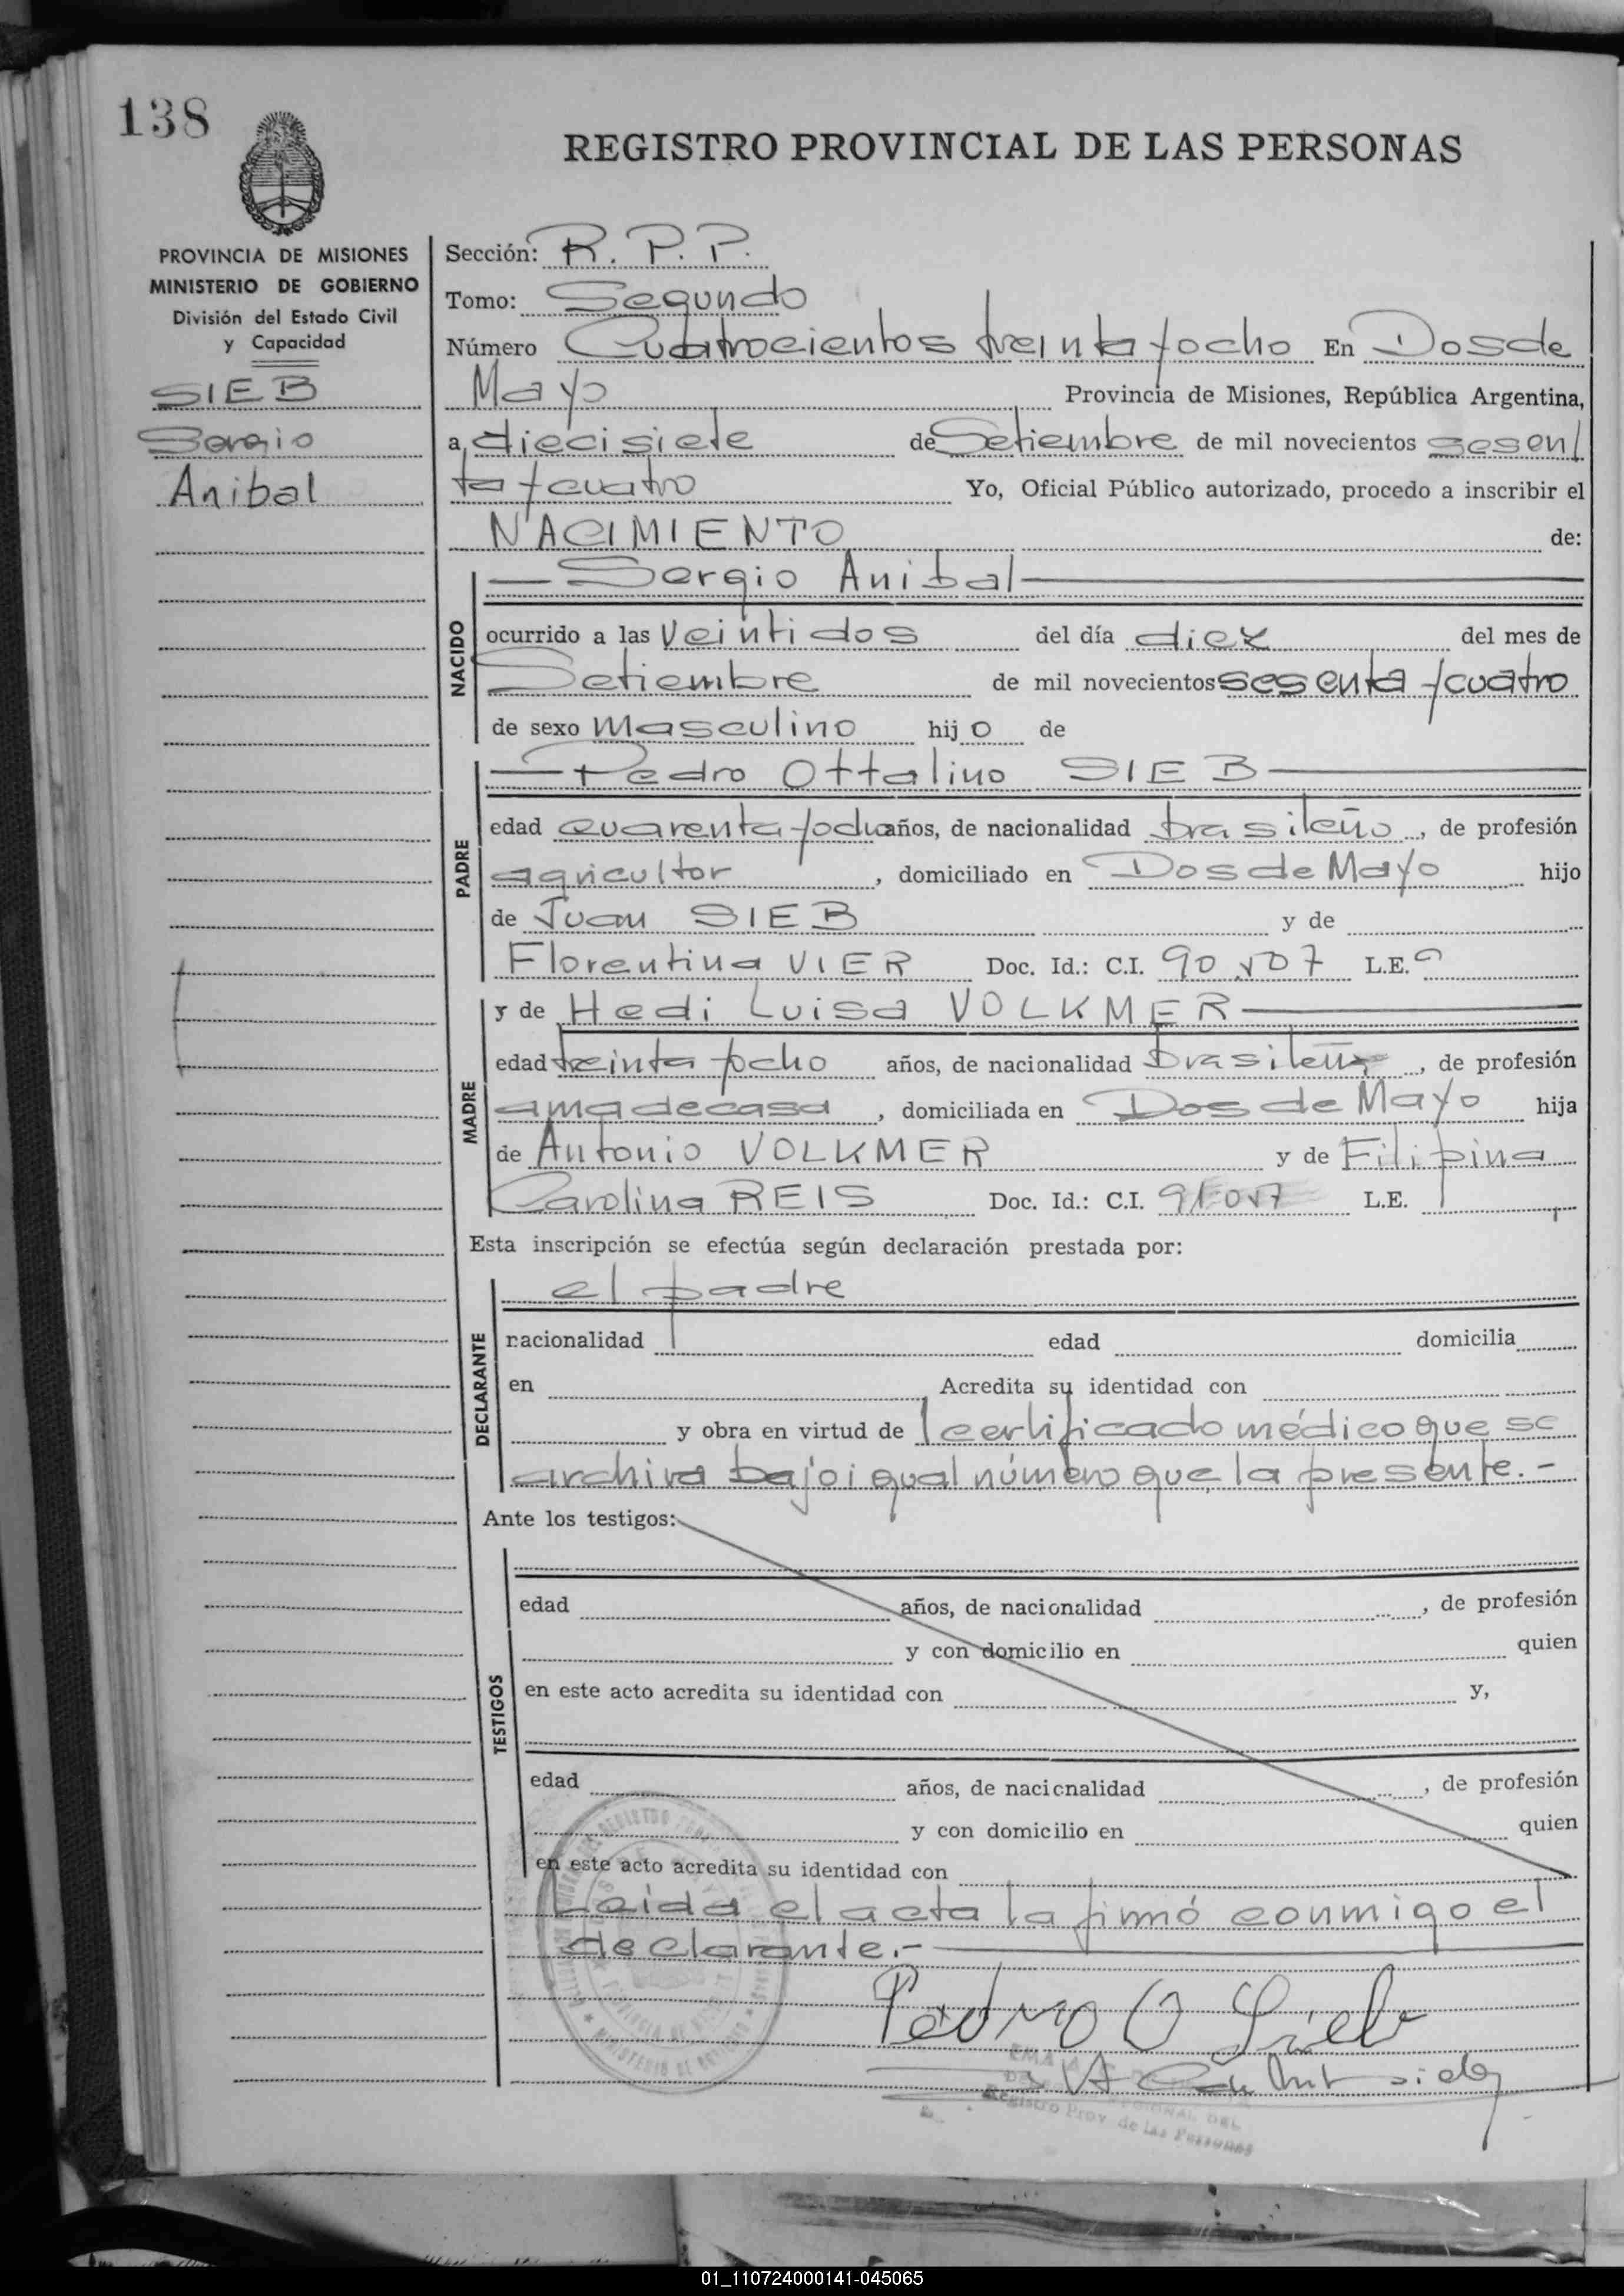 138
REGISTRO PROVINCIAL DE LAS PERSONAS
PROVINCIA DE MISIONES
MINISTERIO DE GOBIERNO
División del Estado Civil
y Capacidad
SIEB
Sergio
Anibal
Sección: R. P. P.
Tomo: Segundo
Número Cuatrocientos treinta y ocho En Dos de
Mayo Provincia de Misiones, República Argentina,
a diecisiete de Setiembre de mil novecientos sesen/
ta y cuatro Yo, Oficial Público autorizado, procedo a inscribir el
NACIMIENTO de:
NACIDO
— Sergio Anibal —
ocurrido a las veintidos del día diez del mes de
Setiembre de mil novecientos sesenta y cuatro
de sexo masculino hijo de
PADRE
— Pedro Ottalino SIEB —
edad cuarenta y ocho años, de nacionalidad brasileño, de profesión
agricultor, domiciliado en Dos de Mayo hijo
de Juan SIEB y de
Florentina VIER Doc. Id.: C.I. L.E.
MADRE
y de Hedi Luisa VOLKMER —
edad treinta y ocho años, de nacionalidad brasileña, de profesión
ama de casa, domiciliada en Dos de Mayo hija
de Antonio VOLKMER y de Filipina
Carolina REIS Doc. Id.: C.I. L.E.
Esta inscripción se efectúa según declaración prestada por:
DECLARANTE
el padre
nacionalidad edad domicilia
en Acredita su identidad con
y obra en virtud de certificado médico que se
archiva bajo igual número que la presente.-
Ante los testigos:
TESTIGOS
edad años, de nacionalidad , de profesión
y con domicilio en quien
en este acto acredita su identidad con y,
edad años, de nacionalidad , de profesión
y con domicilio en quien
en este acto acredita su identidad con
Leida el acta la firmó conmigo el
declarante.- —
Pedro O Sieb
Registro Prov. de las Personas
01_110724000141-045065